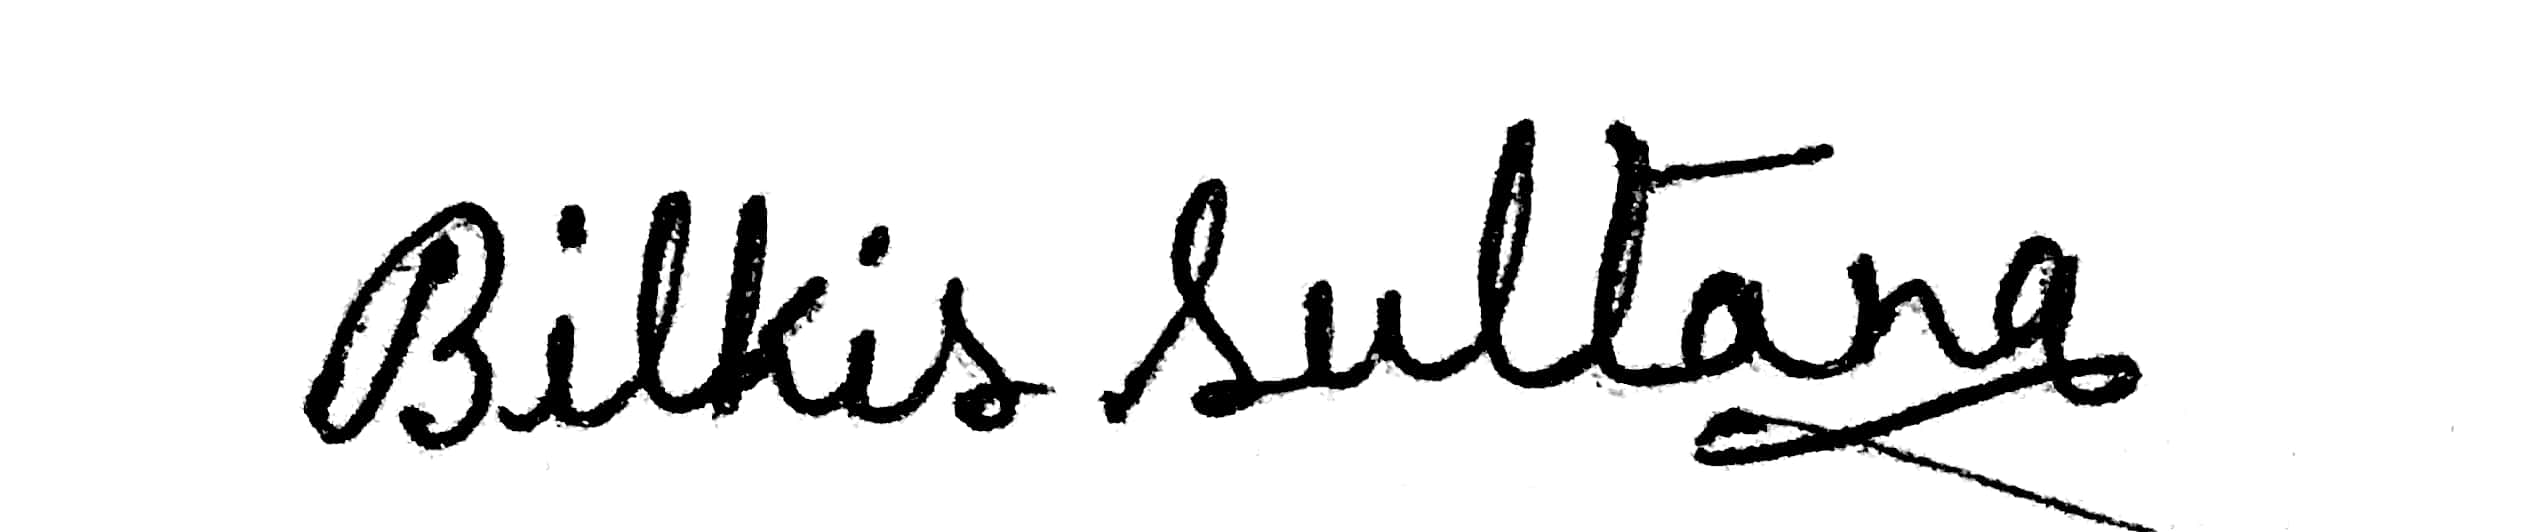 Bilkis Sultana